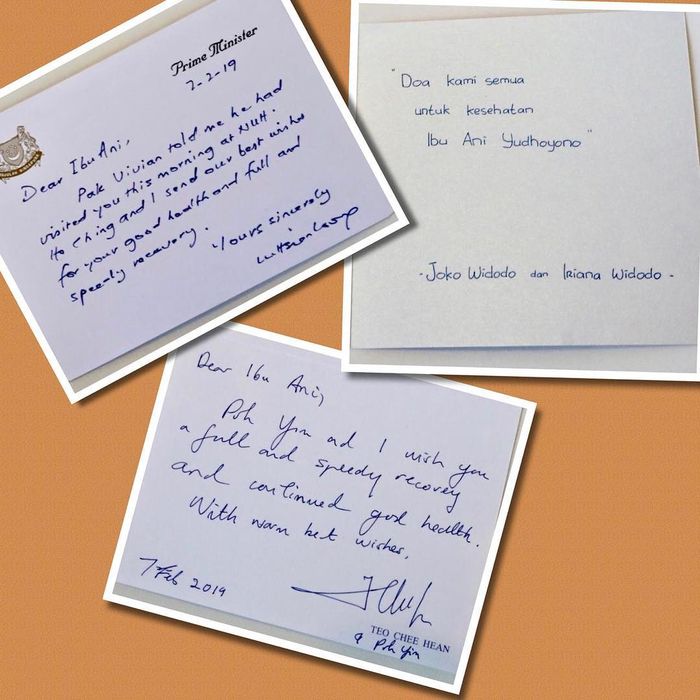 Prime Minister
7-2-19
Dear Ibu Ani,
Pak Vivian told me he had
visited you this morning at NUH.
Ho Ching and I send our best wishes
for your good health and full and
speedy recovery.
Yours sincerely
"Doa kami semua
untuk kesehatan
Ibu Ani Yudhoyono"
- Joko Widodo dan Iriana Widodo -
Dear Ibu Ani,
Poh Yim and I wish you
a full and speedy recovery
and continued good health.
With warm best wishes,
7 Feb 2019
TEO CHEE HEAN
& Poh Yim